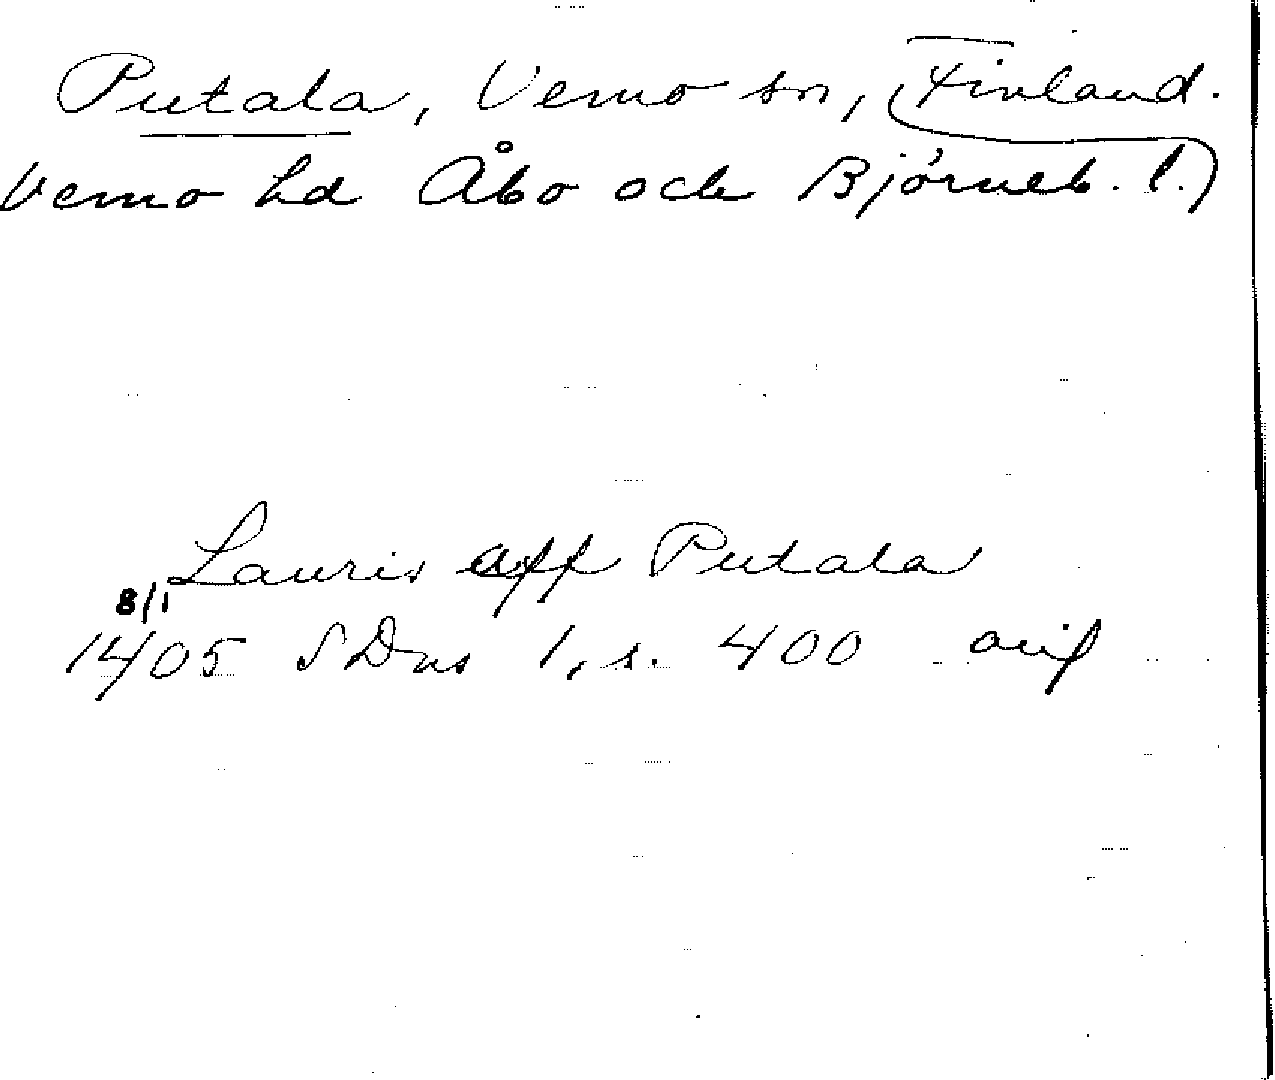 Putala, Vemo sn, (Finland.
Vemo hd Åbo och Björneb. l.)
Lauris aff Putala
8/1
1405 SDns 1, s. 400 avif